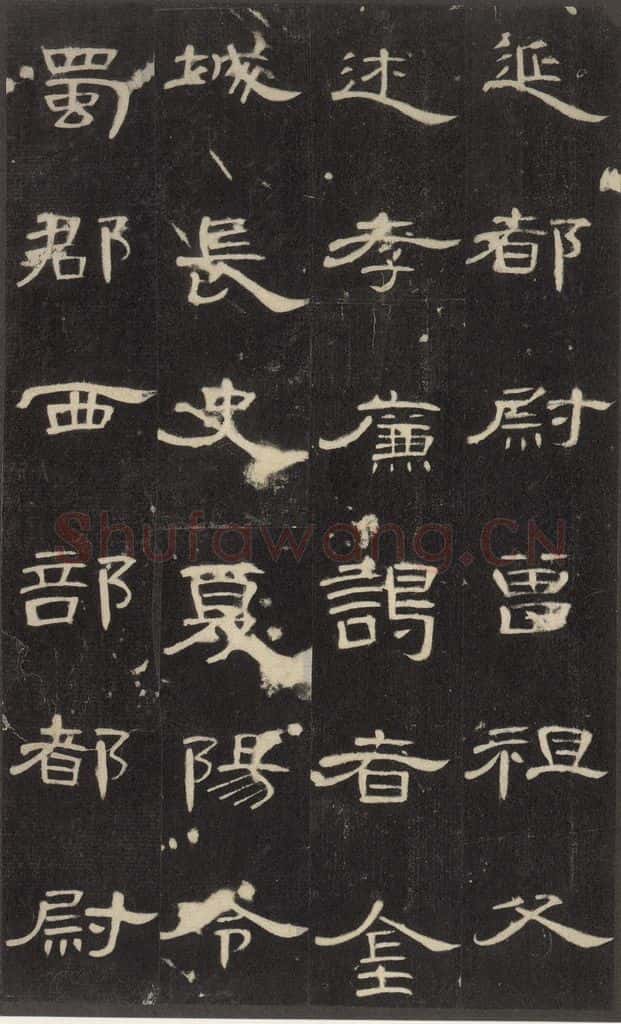 延都尉曾祖父
述孝廉謁者金
城長史夏陽令
蜀郡西部都尉
Shufawang.CN